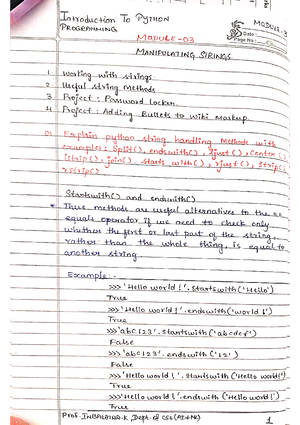 Introduction To Python
Programming
MODULE-3
Date:
Page No:
MODULE-03
MANIPULATING STRINGS
1. Working with strings
2. Useful string Methods
3. Project: Password Locker.
4. Project: Adding Bullets to Wiki Markup.
Explain python string handling Methods with
examples: Split(), endswith(), ljust(), Center()
lstrip(), join(), starts with(), rjust(), Strip()
rstrip()
Startswith() and endswith()
* These methods are useful alternatives to the ==
equals operator if we need to check only
whether the first or last part of the string,
rather than the whole thing, is equal to
another string
Example:-
>>>'Hello world!'.Startswith('Hello')
True
>>>'Hello world!'.endswith('world!')
True
>>>'abc123'.startswith('abcdef')
False
>>>'abc123'.endswith('12')
False
>>>'Hello world!'.Startswith('Hello world!')
True
>>>'Hello world!'.endswith('Hello world!')
True
Prof. INBALATHA.K, Dept. of CSE(AI&ML)
1